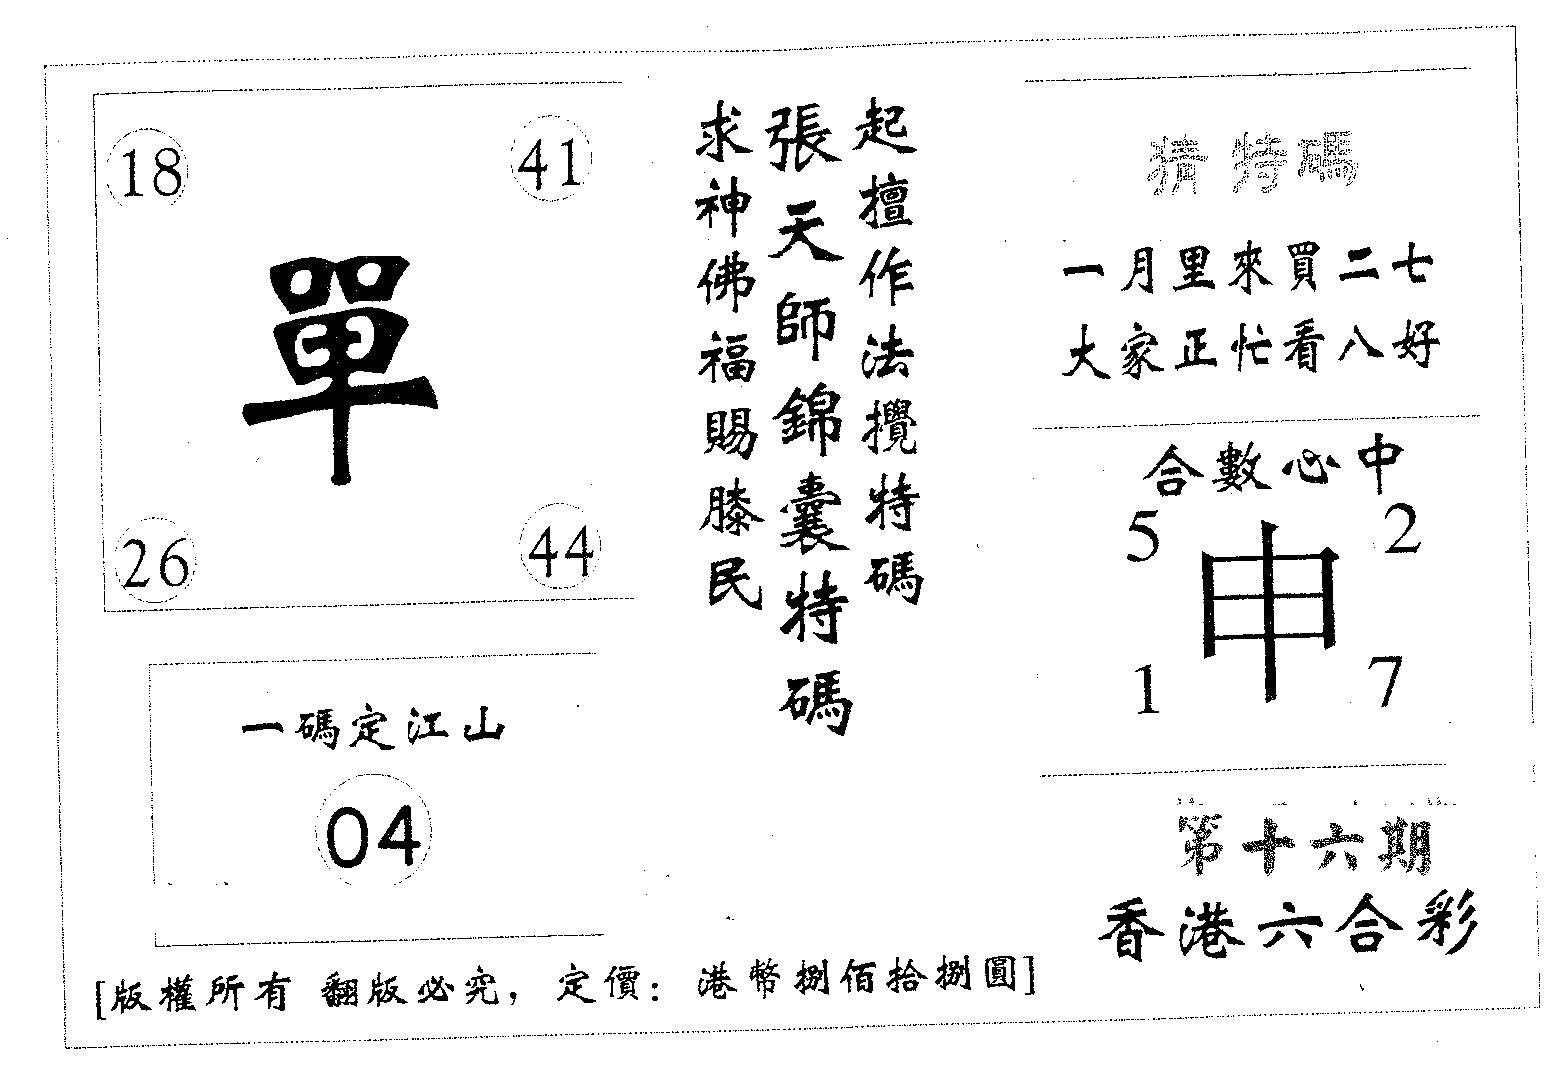 18 41
單
26 44
一碼定江山
04
起擅作法攪特碼
張天師錦囊特碼
求神佛福賜膝民
猜特碼
一月里來買二七
大家正忙看八好
合數必中
5 2
申
1 7
第十六期
香港六合彩
[版權所有 翻版必究，定價：港幣捌佰拾捌圓]